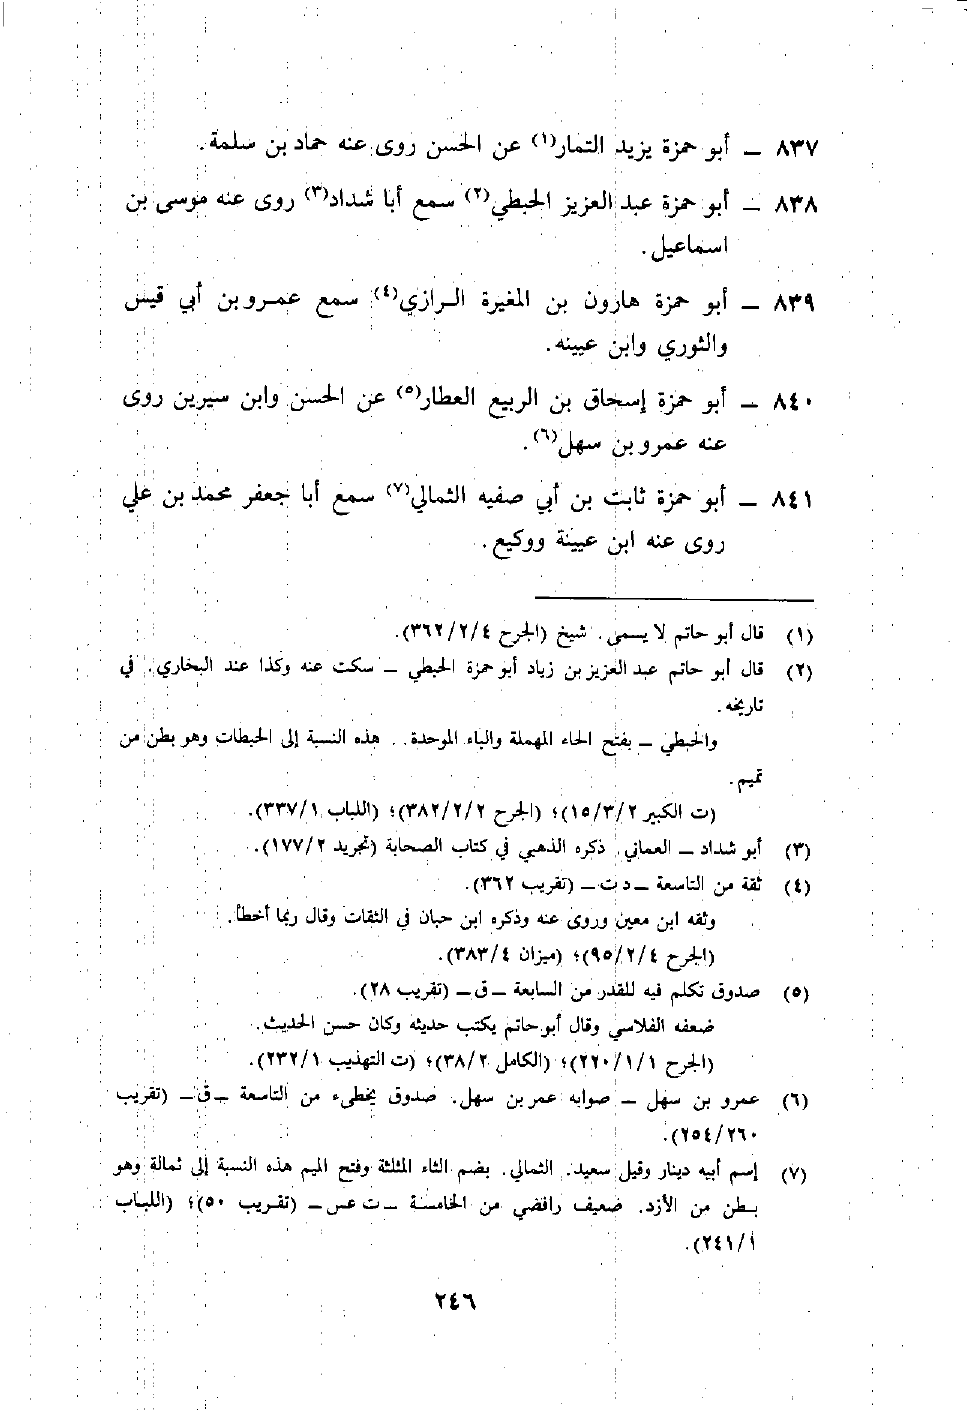 ٨٣٧ ــ أبو حمزة يزيد التمار(١) عن الحسن روى عنه حماد بن سلمة.
٨٣٨ ــ أبو حمزة عبد العزيز الحبطي(٢) سمع أبا شداد(٣) روى عنه موسى بن
اسماعيل.
٨٣٩ ــ أبو حمزة هارون بن المغيرة الرازي(٤) سمع عمرو بن أبي قيس
والثوري وابن عيينه.
٨٤٠ ــ أبو حمزة إسحاق بن الربيع العطار(٥) عن الحسن وابن سيرين روى
عنه عمرو بن سهل(٦).
٨٤١ ــ أبو حمزة ثابت بن أبي صفيه الثمالي(٧) سمع أبا جعفر محمد بن علي
روى عنه ابن عيينة ووكيع.
(١) قال أبو حاتم لا يسمى. شيخ (الجرح ٣٦٢/٢/٤).
(٢) قال أبو حاتم عبد العزيز بن زياد أبو حمزة الحبطي ــ سكت عنه وكذا عند البخاري. في
تاريخه.
والحبطي ــ بفتح الحاء المهملة والباء الموحدة.. هذه النسبة إلى الحبطات وهو بطن من
تميم.
(ت الكبير ١٥/٣/٢)؛ (الجرح ٣٨٢/٢/٢)؛ (اللباب ٣٣٧/١).
(٣) أبو شداد ــ العماني. ذكره الذهبي في كتاب الصحابة (تجريد ١٧٧/٢).
(٤) ثقة من التاسعة ــ د ت ــ (تقريب ٣٦٢).
وثقه ابن معين وروى عنه وذكره ابن حبان في الثقات وقال ربما أخطأ.
(الجرح ٩٥/٢/٤)؛ (ميزان ٣٨٣/٤).
(٥) صدوق تكلم فيه للقدر من السابعة ــ ق ــ (تقريب ٢٨).
ضعفه الفلاسي وقال أبو حاتم يكتب حديثه وكان حسن الحديث.
(الجرح ٢٢٠/١/١)؛ (الكامل ٣٨/٢)؛ (ت التهذيب ٢٣٢/١).
(٦) عمرو بن سهل ــ صوابه عمر بن سهل. صدوق يخطىء من التاسعة ــ ق ــ (تقريب
٢٥٤/٢٦٠).
(٧) إسم أبيه دينار وقيل سعيد. الثمالي. بضم الثاء المثلثة وفتح الميم هذه النسبة إلى ثمالة وهو
بطن من الأزد. ضعيف رافضي من الخامسة ــ ت عس ــ (تقريب ٥٠)؛ (اللباب
٢٤١/١).
٢٤٦